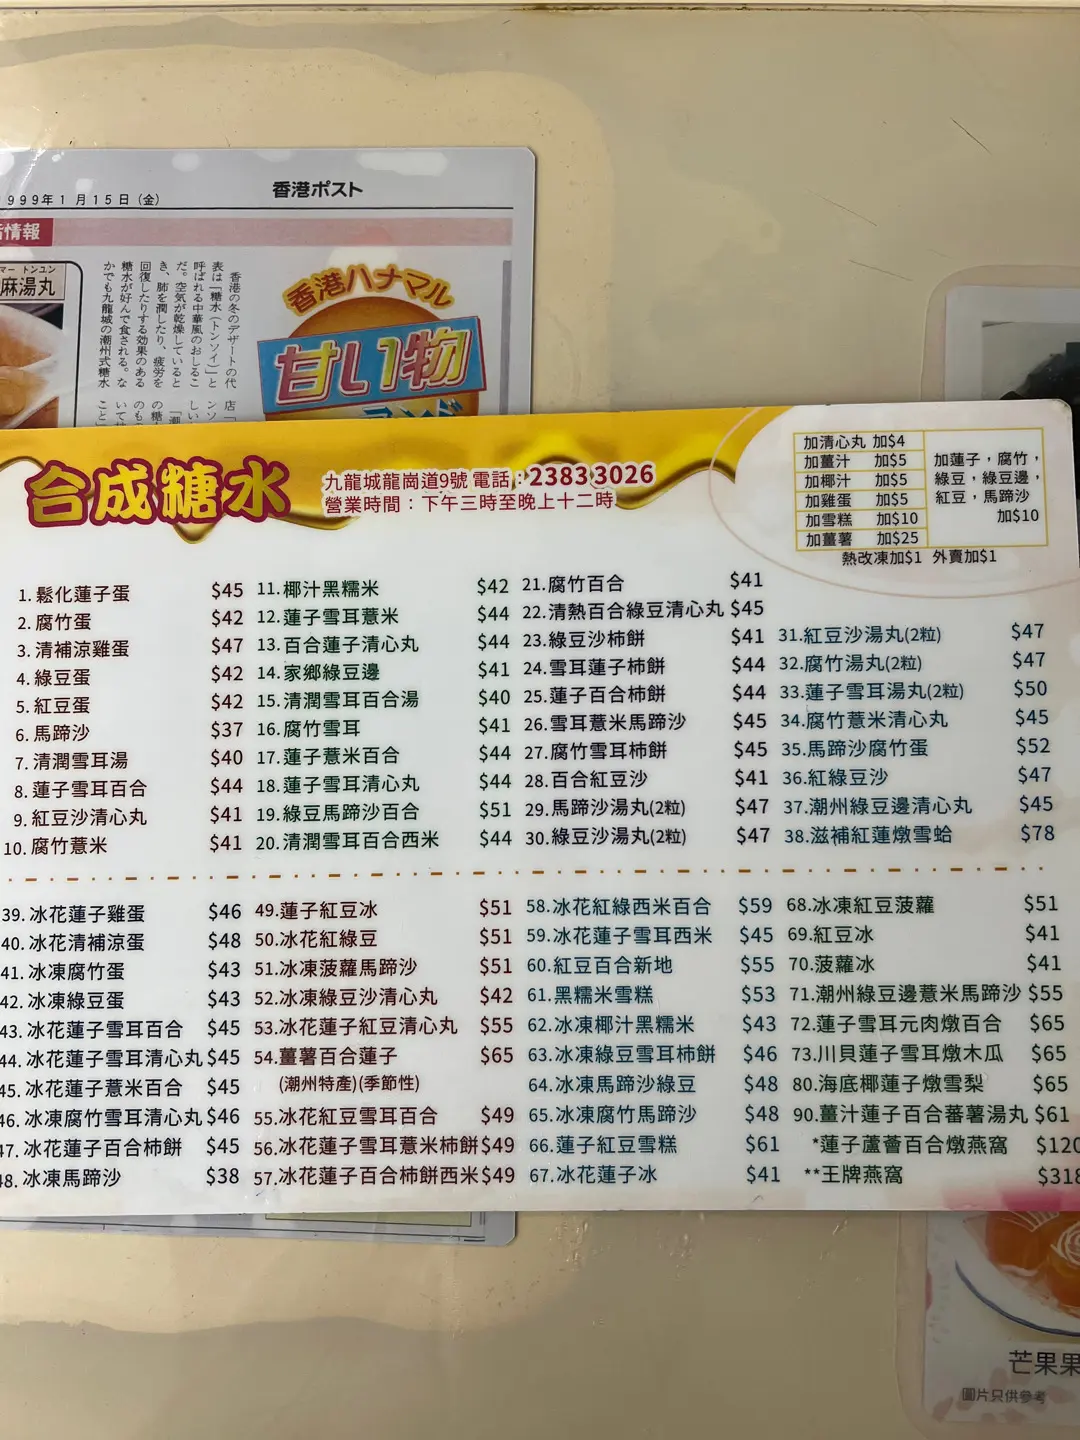 999年1月15日(金)
香港ポスト
情報
マー トンユン
麻湯丸
香港の冬のデザートの代
表は「糖水(トンソイ)」と
呼ばれる中華風のおしるこ
だ。空気が乾燥していると
き、肺を潤したり、疲労を
回復したりする効果のある
糖水が好んで食される。な
かでも九龍城の潮州式糖水
香港ハナマル
甘い物
合成糖水
九龍城龍崗道9號 電話:2383 3026
營業時間:下午三時至晚上十二時
加清心丸 加$4
加薑汁 加$5
加椰汁 加$5
加雞蛋 加$5
加雪糕 加$10
加薑薯 加$25
加蓮子,腐竹,
綠豆,綠豆邊,
紅豆,馬蹄沙
加$10
熱改凍加$1 外賣加$1
1.鬆化蓮子蛋 $45
2.腐竹蛋 $42
3.清補涼雞蛋 $47
4.綠豆蛋 $42
5.紅豆蛋 $42
6.馬蹄沙 $37
7.清潤雪耳湯 $40
8.蓮子雪耳百合 $44
9.紅豆沙清心丸 $41
10.腐竹薏米 $41
11.椰汁黑糯米 $42
12.蓮子雪耳薏米 $44
13.百合蓮子清心丸 $44
14.家鄉綠豆邊 $41
15.清潤雪耳百合湯 $40
16.腐竹雪耳 $41
17.蓮子薏米百合 $44
18.蓮子雪耳清心丸 $44
19.綠豆馬蹄沙百合 $51
20.清潤雪耳百合西米 $44
21.腐竹百合 $41
22.清熱百合綠豆清心丸 $45
23.綠豆沙柿餅 $41
24.雪耳蓮子柿餅 $44
25.蓮子百合柿餅 $44
26.雪耳薏米馬蹄沙 $45
27.腐竹雪耳柿餅 $45
28.百合紅豆沙 $41
29.馬蹄沙湯丸(2粒) $47
30.綠豆沙湯丸(2粒) $47
31.紅豆沙湯丸(2粒) $47
32.腐竹湯丸(2粒) $47
33.蓮子雪耳湯丸(2粒) $50
34.腐竹薏米清心丸 $45
35.馬蹄沙腐竹蛋 $52
36.紅綠豆沙 $47
37.潮州綠豆邊清心丸 $45
38.滋補紅蓮燉雪蛤 $78
39.冰花蓮子雞蛋 $46
40.冰花清補涼蛋 $48
41.冰凍腐竹蛋 $43
42.冰凍綠豆蛋 $43
43.冰花蓮子雪耳百合 $45
44.冰花蓮子雪耳清心丸 $45
45.冰花蓮子薏米百合 $45
46.冰凍腐竹雪耳清心丸 $46
47.冰花蓮子百合柿餅 $45
48.冰凍馬蹄沙 $38
49.蓮子紅豆冰 $51
50.冰花紅綠豆 $51
51.冰凍菠蘿馬蹄沙 $51
52.冰凍綠豆沙清心丸 $42
53.冰花蓮子紅豆清心丸 $55
54.薑薯百合蓮子 $65
(潮州特產)(季節性)
55.冰花紅豆雪耳百合 $49
56.冰花蓮子雪耳薏米柿餅 $49
57.冰花蓮子百合柿餅西米 $49
58.冰花紅綠西米百合 $59
59.冰花蓮子雪耳西米 $45
60.紅豆百合新地 $55
61.黑糯米雪糕 $53
62.冰凍椰汁黑糯米 $43
63.冰凍綠豆雪耳柿餅 $46
64.冰凍馬蹄沙綠豆 $48
65.冰凍腐竹馬蹄沙 $48
66.蓮子紅豆雪糕 $61
67.冰花蓮子冰 $41
68.冰凍紅豆菠蘿 $51
69.紅豆冰 $41
70.菠蘿冰 $41
71.潮州綠豆邊薏米馬蹄沙 $55
72.蓮子雪耳元肉燉百合 $65
73.川貝蓮子雪耳燉木瓜 $65
80.海底椰蓮子燉雪梨 $65
90.薑汁蓮子百合蕃薯湯丸 $61
*蓮子蘆薈百合燉燕窩 $120
**王牌燕窩 $318
芒果果
圖片只供參考